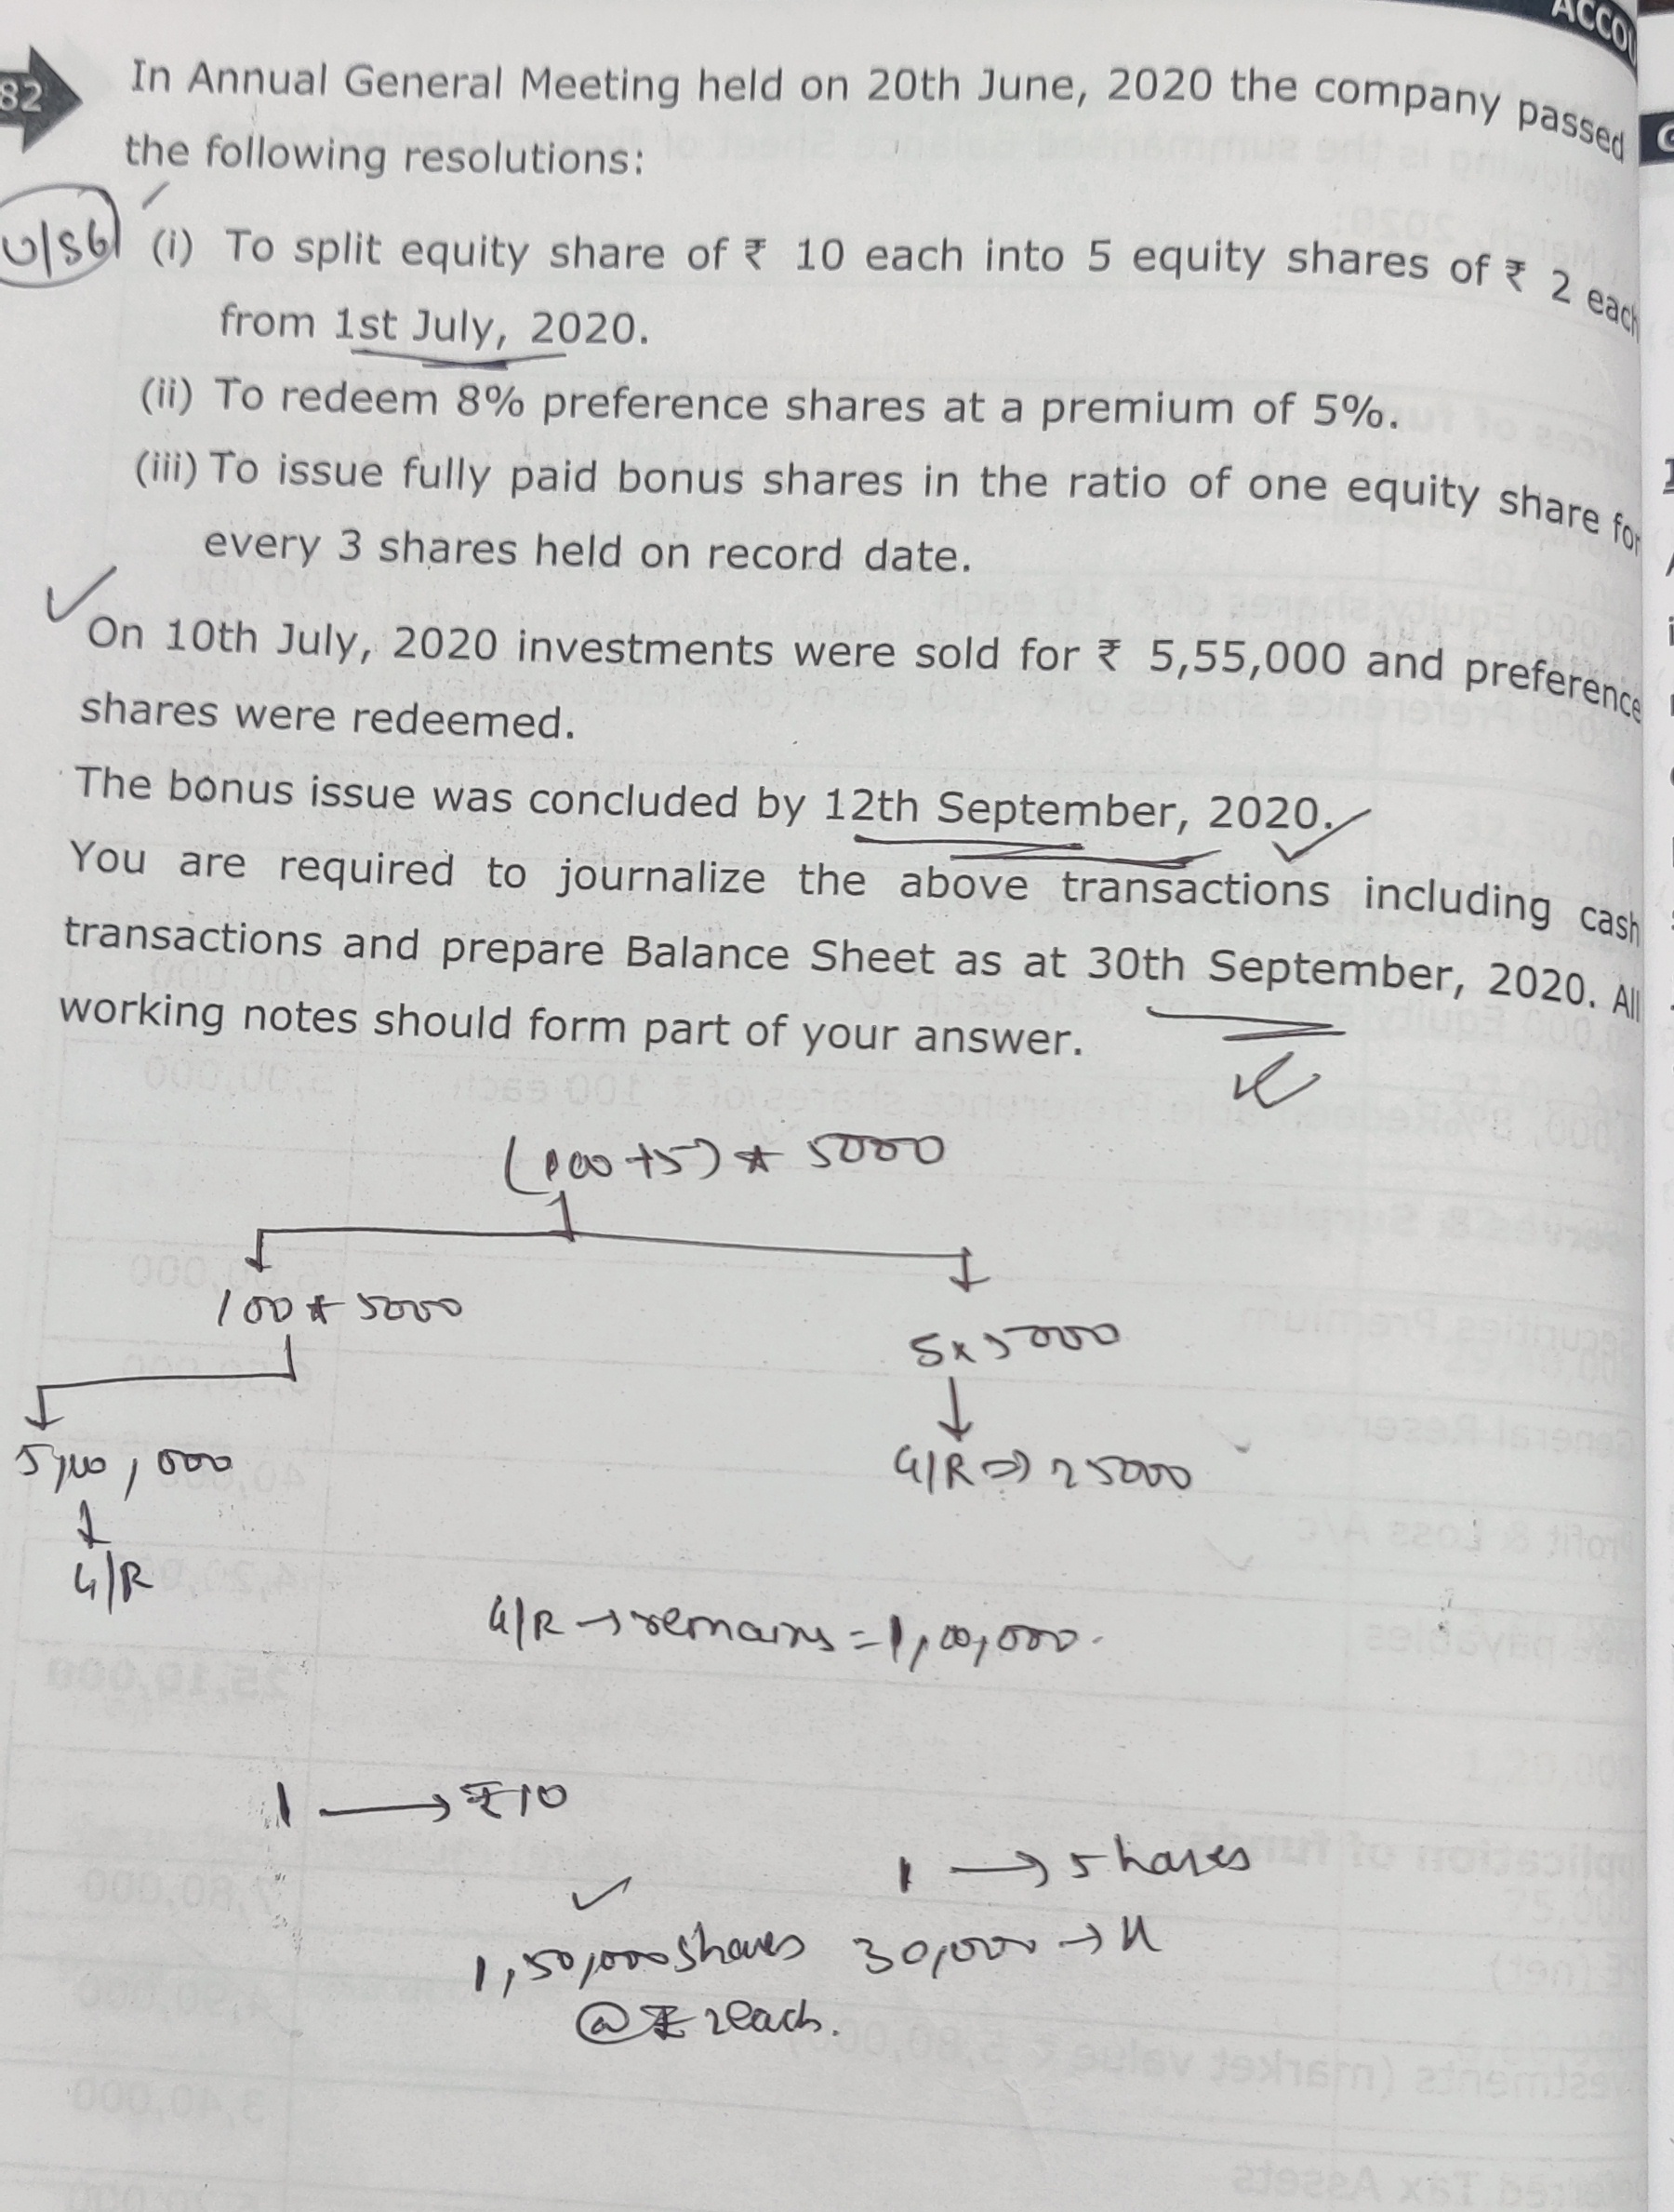 ACCOU
82
In Annual General Meeting held on 20th June, 2020 the company passed
the following resolutions:
(i) To split equity share of ₹ 10 each into 5 equity shares of ₹ 2 each
from 1st July, 2020.
(ii) To redeem 8% preference shares at a premium of 5%.
(iii) To issue fully paid bonus shares in the ratio of one equity share for
every 3 shares held on record date.
On 10th July, 2020 investments were sold for ₹ 5,55,000 and preference
shares were redeemed.
The bonus issue was concluded by 12th September, 2020.
You are required to journalize the above transactions including cash
transactions and prepare Balance Sheet as at 30th September, 2020. All
working notes should form part of your answer.
(100+5) * 5000
100 * 5000
5x5000
5,00,000
G/R => 25000
G/R
G/R → remains = 1,00,000.
1 → ₹10
1 → 5 shares
1,50,000 shares 30,000 →
@ ₹ 2 each.